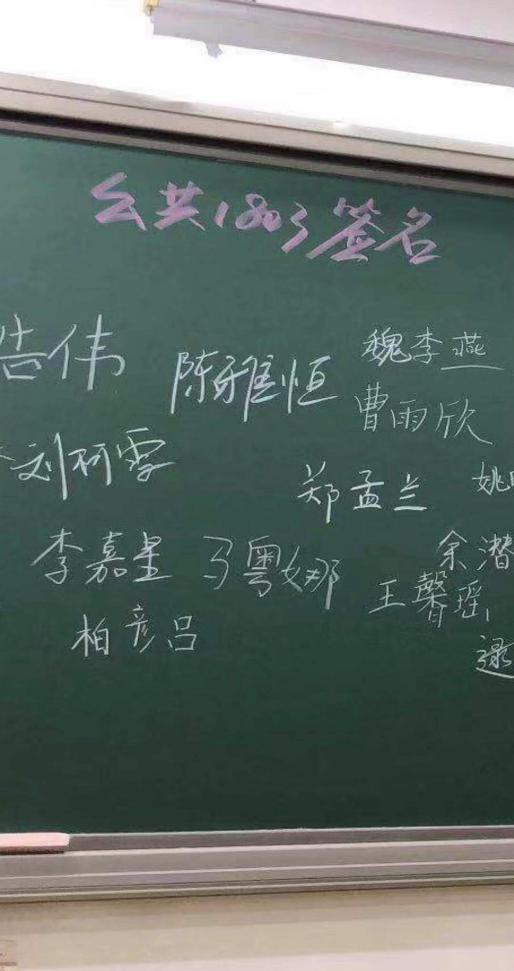 公共1803签名
告伟 陈雅恒 魏李燕
曹雨欣
刘柯雯 郑孟兰 姚
李嘉星 马粤娜 余潜
王馨瑶
柏彦吕 逯